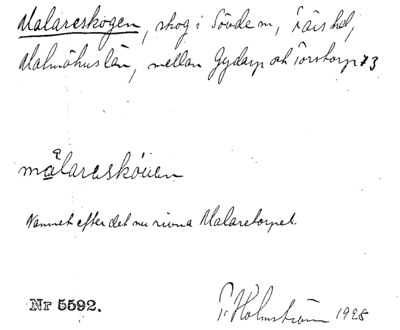 Malareskogen, skog i Sövde sn, Färs hd,
Malmöhus län, mellan Gydarp och Torstorp 73
målareskóuen
Namnet efter det nu rivna Malaretorpet.
Nr 5592.
P. Holmström 1928